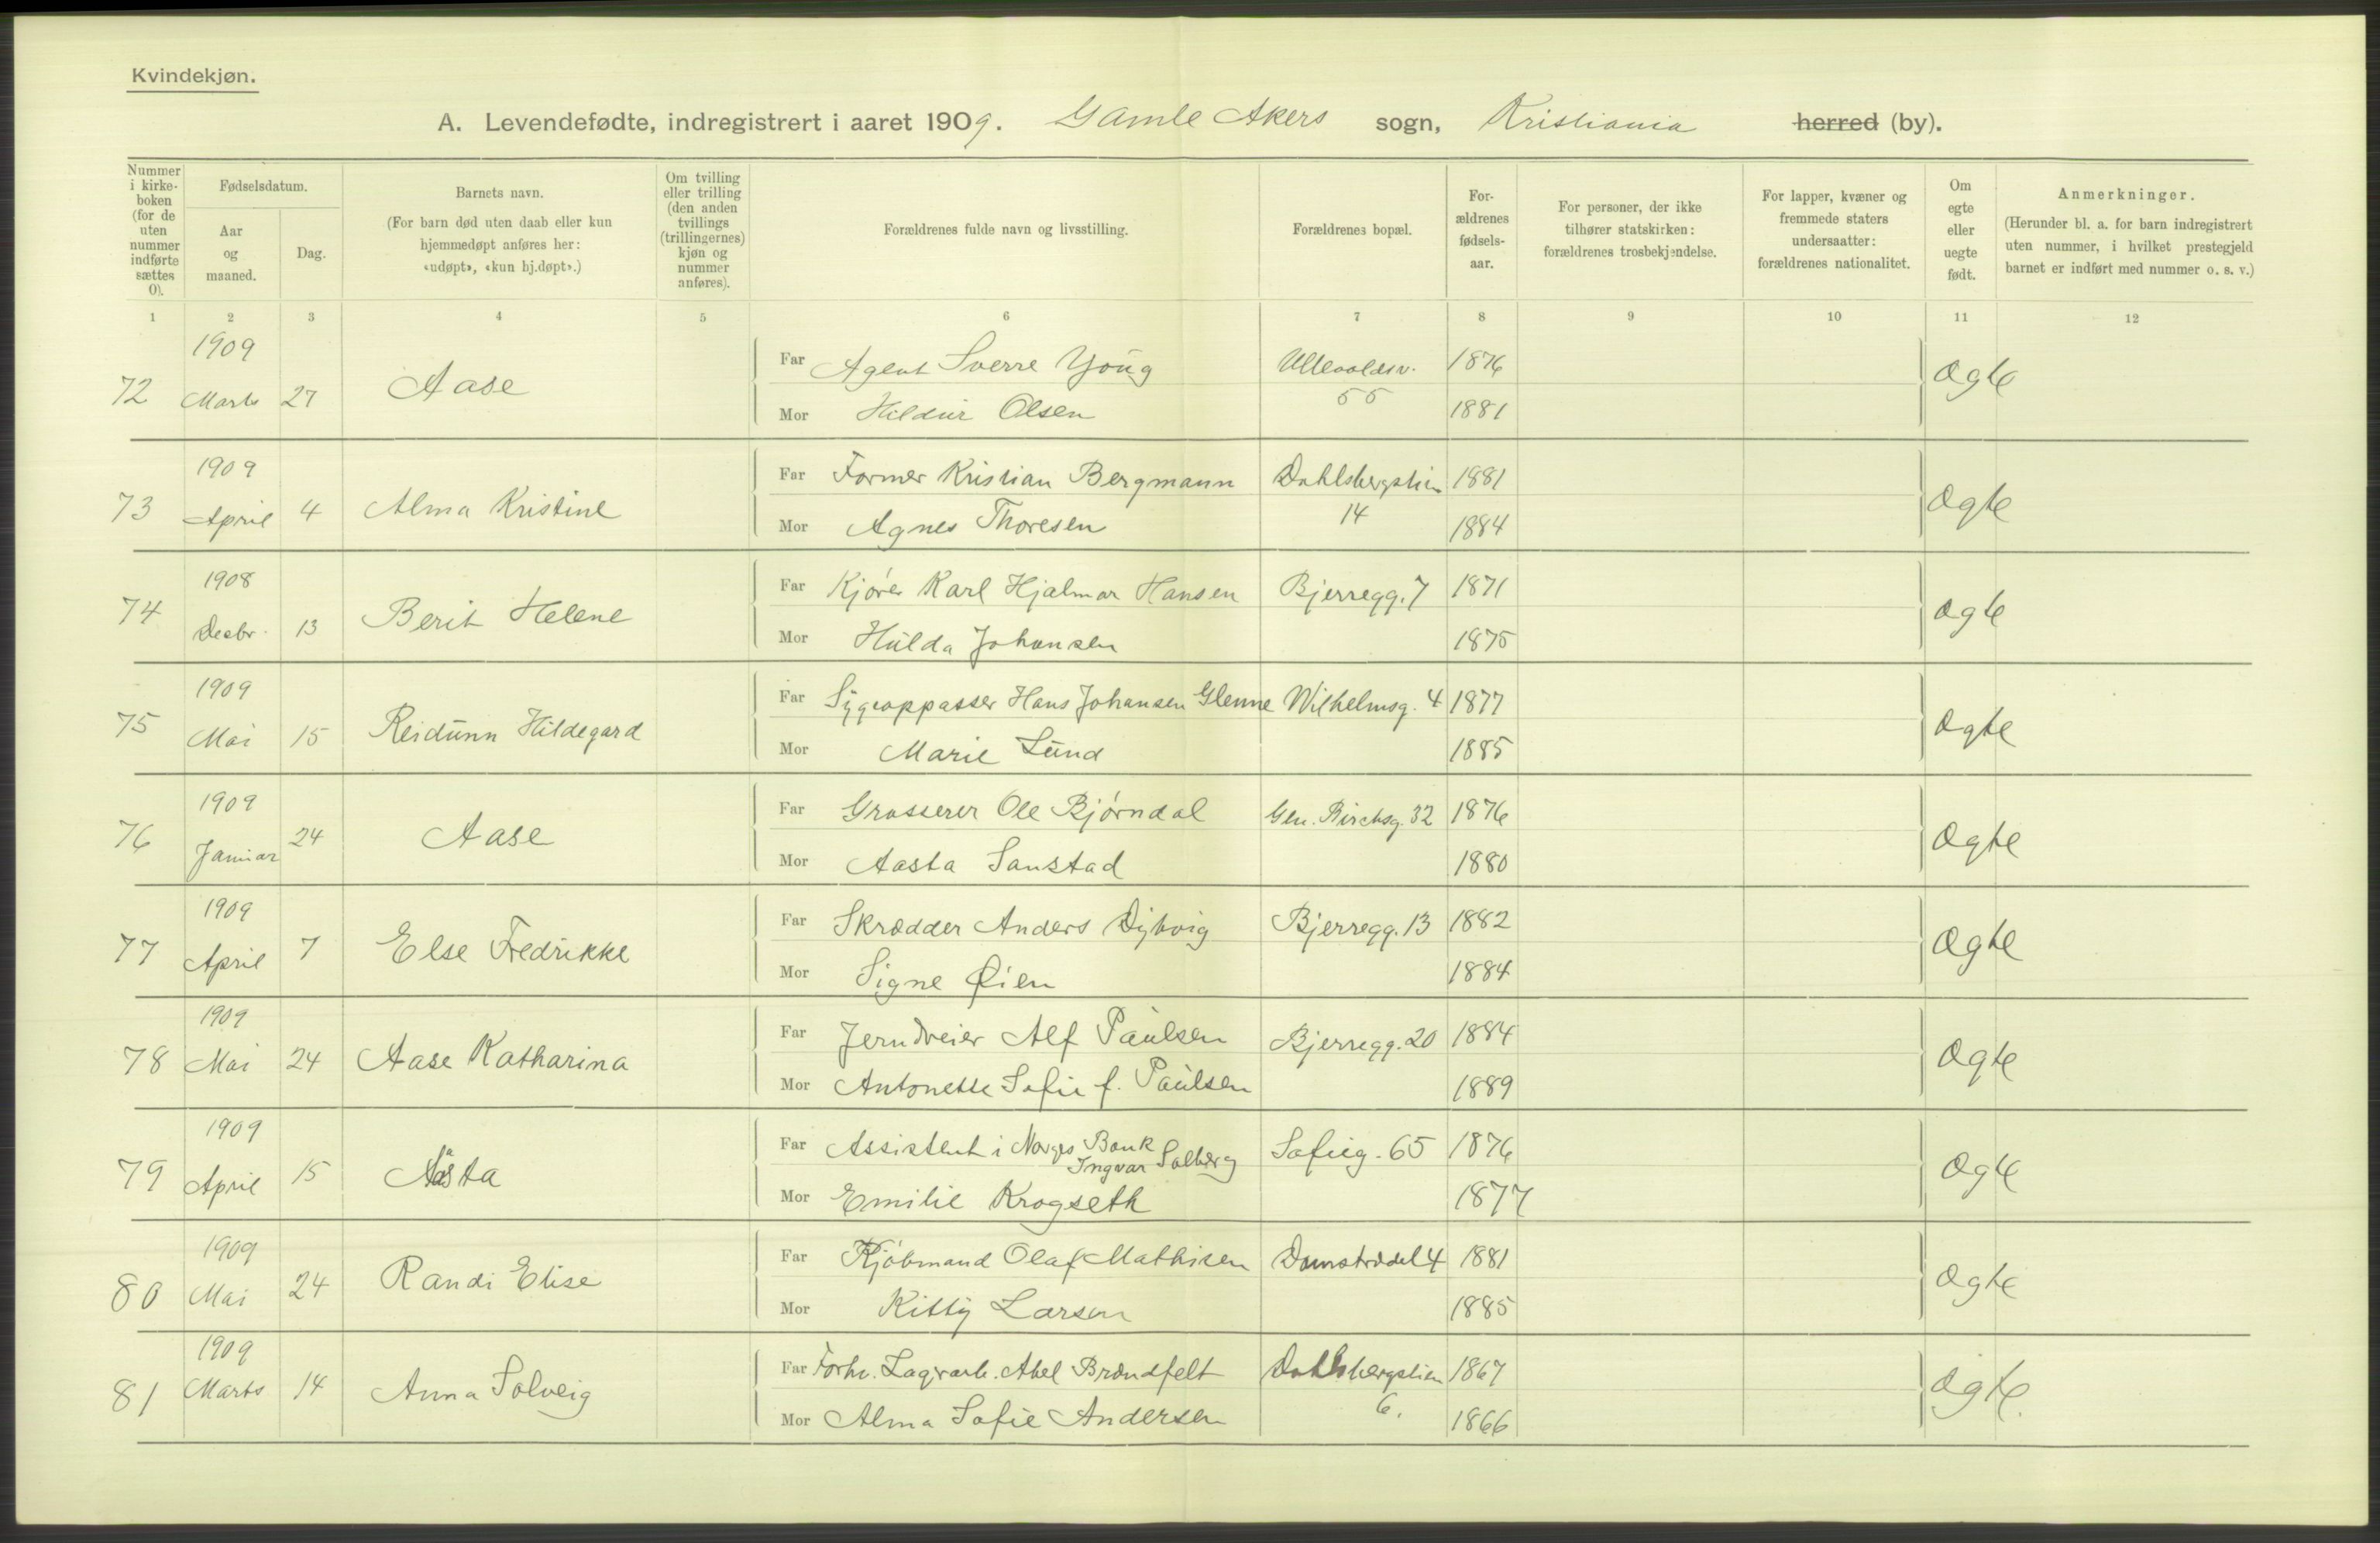 Kvindekjøn.
A. Levendefødte, indregistrert i aaret 1909. Gamle Akers sogn, Kristiania herred (by).
Nummer i kirke-boken (for de uten nummer indførte sættes 0).
Fødselsdatum.
Aar og maaned.
Dag.
Barnets navn.
(For barn død uten daab eller kun hjemmedøpt anføres her: «udøpt», «kun hj.døpt».)
Om tvilling eller trilling (den anden tvillings (trillingernes) kjøn og nummer anføres).
Forældrenes fulde navn og livsstilling.
Forældrenes bopæl.
For-ældrenes fødsels-aar.
For personer, der ikke tilhører statskirken: forældrenes trosbekjendelse.
For lapper, kvæner og fremmede staters undersaatter: forældrenes nationalitet.
Om egte eller uegte født.
Anmerkninger.
(Herunder bl. a. for barn indregistrert uten nummer, i hvilket prestegjeld barnet er indført med nummer o. s. v.)
1 2 3 4 5 6 7 8 9 10 11 12
1909
72 Marts 27 Aase Far Agent Sverre Young Ullevoldsv. 55 1876 Ægte
Mor Hildur Olsen 1881
1909
73 April 4 Alma Kristine Far Former Kristian Bergmann Dahlsbergstien 14 1881 Ægte
Mor Agnes Thoresen 1884
1908
74 Decbr. 13 Berit Helene Far Kjører Karl Hjalmar Hansen Bjerregg. 7 1871 Ægte
Mor Hulda Johansen 1875
1909
75 Mai 15 Reidunn Hildegard Far Sygeoppasser Hans Johansen Glenne Wilhelmsg. 4 1877 Ægte
Mor Marie Lund 1885
1909
76 Januar 24 Aase Far Grosserer Ole Bjørndal Gen. Birchsg. 32 1876 Ægte
Mor Aasta Sanstad 1880
1909
77 April 7 Else Fredrikke Far Skrædder Anders Dybvig Bjerregg. 13 1882 Ægte
Mor Signe Øien 1884
1909
78 Mai 24 Aase Katharina Far Jerndreier Alf Paulsen Bjerregg. 20 1884 Ægte
Mor Antonette Sofie f. Paulsen 1889
1909
79 April 15 Åsta Far Assistent i Norges Bank Ingvar Solberg Sofieg. 65 1876 Ægte
Mor Emilie Krogseth 1877
1909
80 Mai 24 Randi Elise Far Kjøbmand Olaf Mathisen Damstrædet 4 1881 Ægte
Mor Kitty Larsen 1885
1909
81 Marts 14 Anna Solveig Far Forhv. Lagrarb. Abel Brændfelt Dahlsbergstien 6. 1867 Ægte.
Mor Alma Sofie Andersen 1866